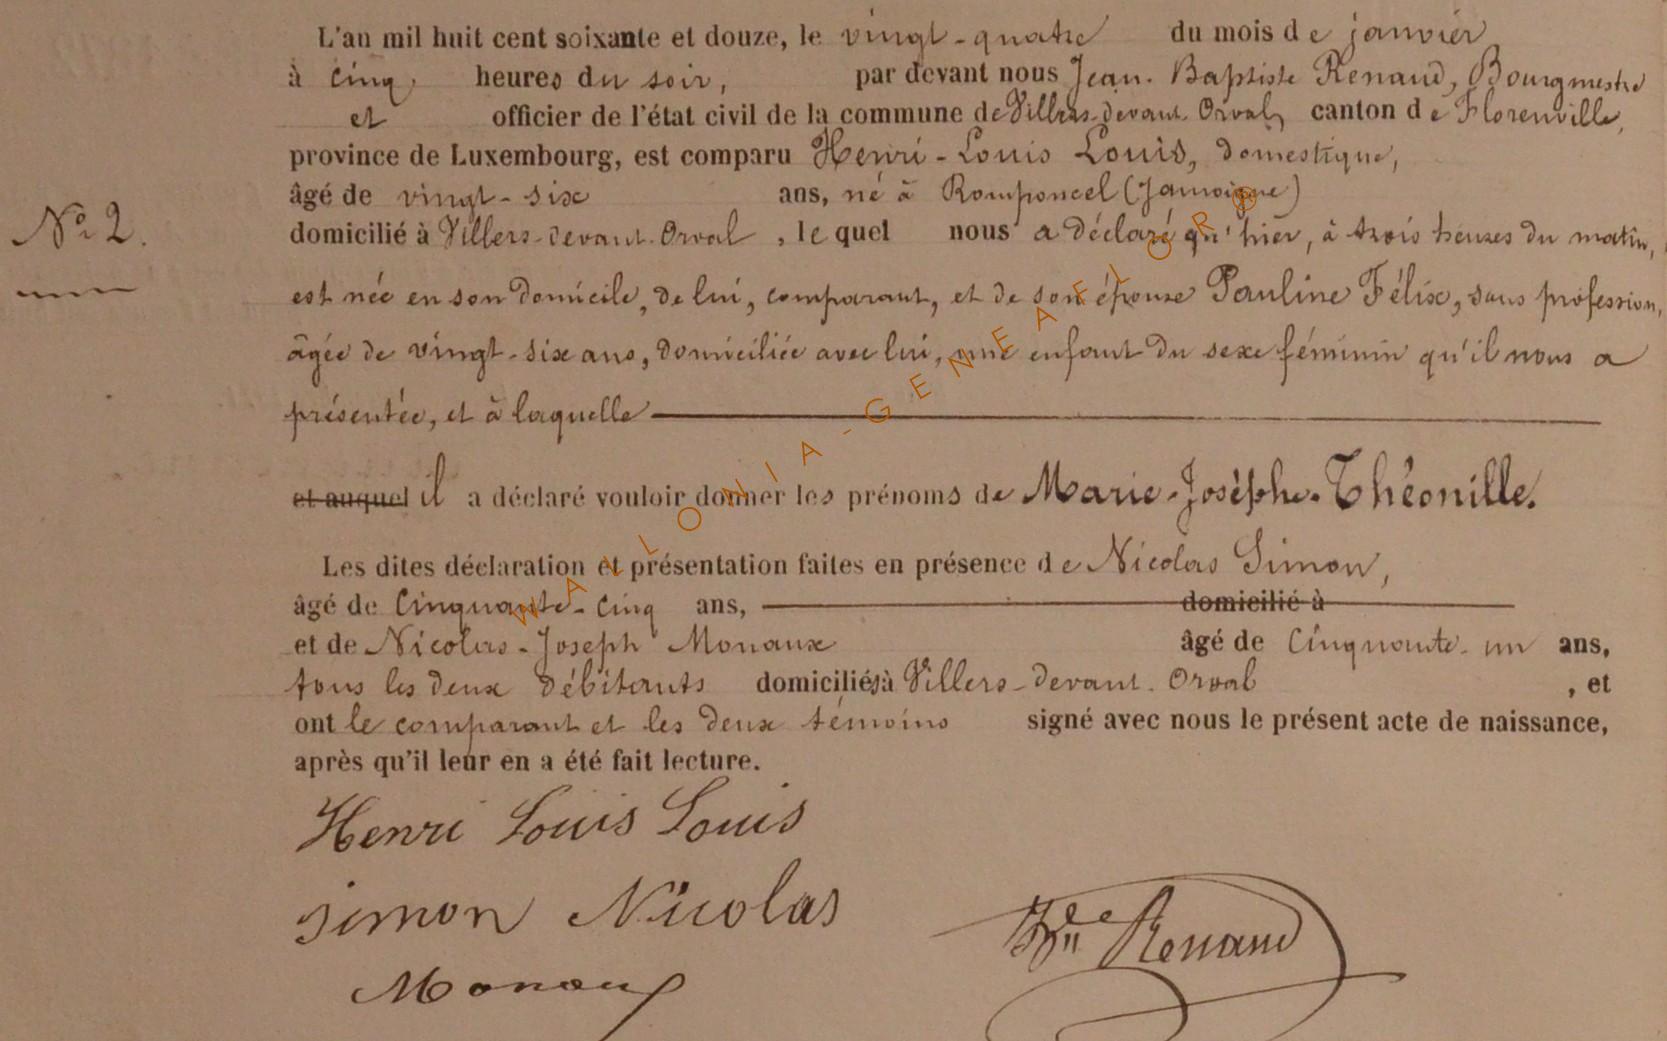 L'an mil huit cent soixante et douze, le vingt-quatre du mois de janvier
à cinq heures du soir, par devant nous Jean-Baptiste Renaud, Bourgmestre
et officier de l'état civil de la commune de Villers-devant-Orval, canton de Florenville,
province de Luxembourg, est comparu Henri-Louis Louis, domestique,
âgé de vingt-six ans, né à Romponcel (Jamoigne)
N° 2.
domicilié à Villers-devant-Orval, lequel nous a déclaré qu'hier, à trois heures du matin,
est née en son domicile, de lui, comparant, et de son épouse Pauline Félix, sans profession,
âgée de vingt-six ans, domiciliée avec lui, une enfant du sexe féminin qu'il nous a
présentée, et à laquelle
et auquel il a déclaré vouloir donner les prénoms de Marie-Josèphe-Théonille.
Les dites déclaration et présentation faites en présence de Nicolas Simon,
âgé de cinquante-cinq ans, domicilié à
et de Nicolas-Joseph Monaux âgé de cinquante-un ans,
tous les deux débitants domiciliés à Villers-devant-Orval, et
ont le comparant et les deux témoins signé avec nous le présent acte de naissance,
après qu'il leur en a été fait lecture.
Henri Louis Louis
Simon Nicolas
Renaud
Monaux
WALLONIA-GENEAFLOR®